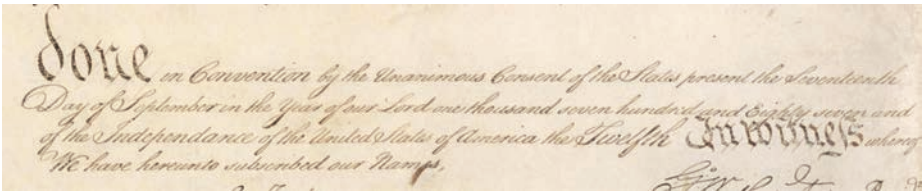 done in Convention by the Unanimous Consent of the States present the Seventeenth
Day of September in the Year of our Lord one thousand seven hundred and Eighty seven and
of the Independance of the United States of America the Twelfth In witness whereof
We have hereunto subscribed our Names,